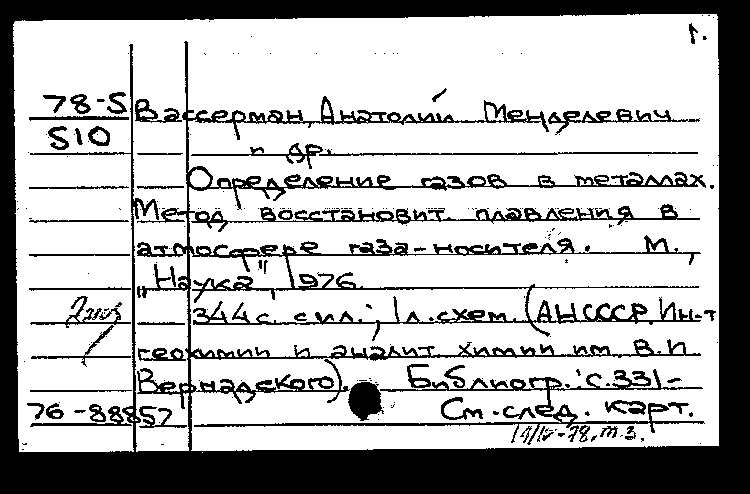 1.
78-5 Вассерман, Анатолий Менделевич
510
и др.
Определение газов в металлах.
Метод восстановит. плавления в
атмосфере газа-носителя. М.,
„Наука", 1976.
344 с. с ил.; 1 л. схем. (АН СССР. Ин-т
геохимии и аналит. химии им. В.И.
Вернадского). Библиогр.: с. 331-
76-88857 См. след. карт.